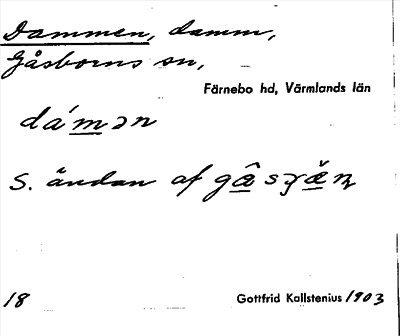 Dammen, damm,
Gåsborns sn,
Färnebo hd, Värmlands län
dámən
S. ändan af
18
Gottfrid Kallstenius 1903